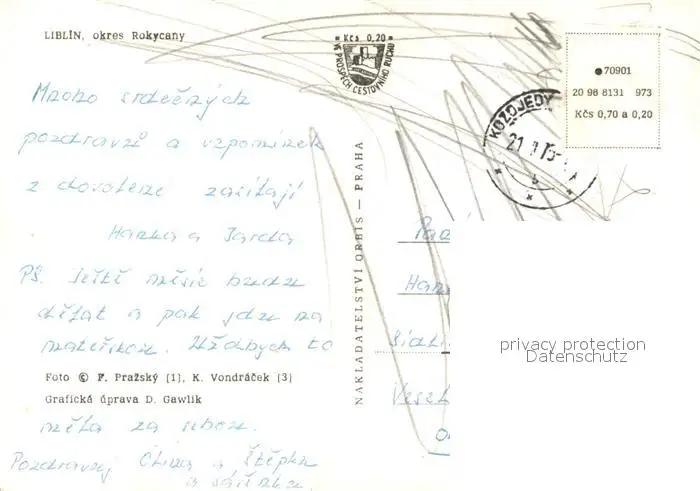 LIBLÍN, okres Rokycany
Kčs 0,20
VE PROSPĚCH CESTOVNÍHO RUCHU
70901
20 98 8131 973
Kčs 0,70 a 0,20
KOŽOJEDY
Mnoho srdečných
pozdravů a vzpomínek
z dovolené zasílají
Hanka a Jarda
PS. Ještě měsíc budu
dělat a pak jdu na
mateřskou. Už abych to
Foto © F. Pražský (1), K. Vondráček (3)
Grafická úprava D. Gawlik
měla za sebou.
Pozdravuj a Štěpku
a
NAKLADATELSTVÍ ORBIS — PRAHA
Han
Sídli
privacy protection
Datenschutz